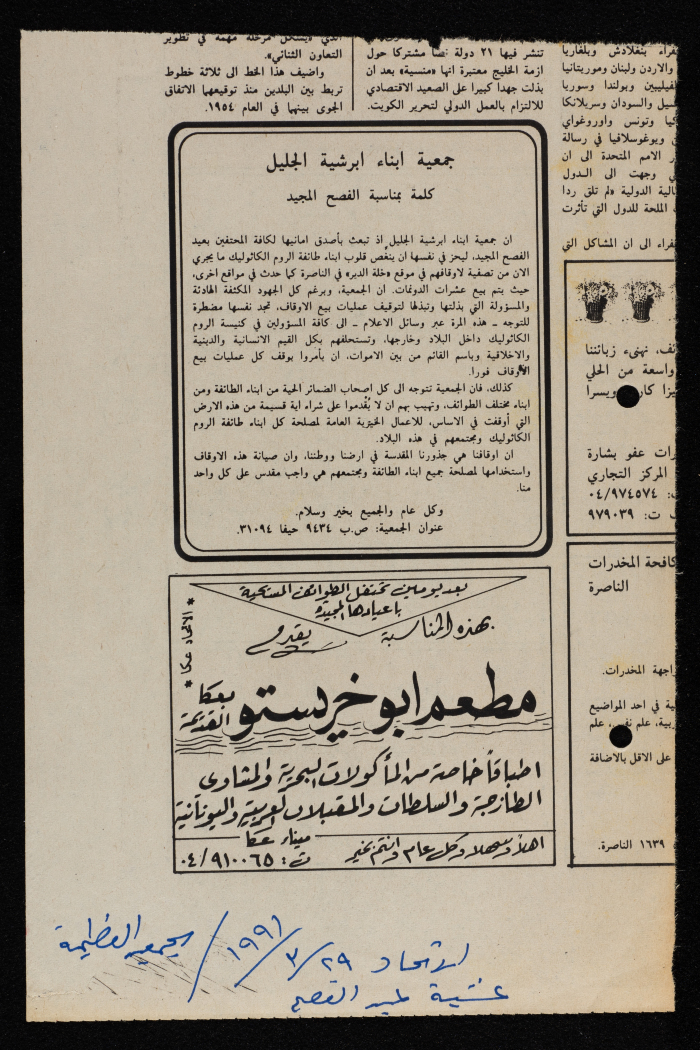 التعاون الثنائي».
واضيف هذا الخط الى ثلاثة خطوط
تربط بين البلدين منذ توقيعهما الاتفاق
الجوى بينهما في العام ١٩٥٤.
تنشر فيها ٢١ دولة نصا مشتركا حول
ازمة الخليج معتبرة انها «منسية» بعد ان
بذلت جهدا كبيرا على الصعيد الاقتصادي
للالتزام بالعمل الدولي لتحرير الكويت.
فراء بنغلادش وبلغاريا
والاردن ولبنان وموريتانيا
لفيليبين وبولندا وسوريا
والسودان وسريلانكا
وتونس واوروغواي
ويوغوسلافيا في رسالة
الامم المتحدة الى ان
وجهت الى الـدول
الدولية «لم تلق ردا
الملحة للدول التي تأثرت
فراء الى ان المشاكل التي
جمعية ابناء ابرشية الجليل
كلمة بمناسبة الفصح المجيد
ان جمعية ابناء ابرشية الجليل اذ تبعث بأصدق امانيها لكافة المحتفين بعيد
الفصح المجيد، ليحز في نفسها ان ينغّص قلوب ابناء طائفة الروم الكاثوليك ما يجري
الان من تصفية لاوقافهم في موقع «خلة الدير» في الناصرة كما حدث في مواقع اخرى،
حيث يتم بيع عشرات الدونمات. ان الجمعية، وبرغم كل الجهود المكثفة الهادئة
والمسؤولة التي بذلتها وتبذلها لتوقيف عمليات بيع الاوقاف، تجد نفسها مضطرة
للتوجه ـ هذه المرة عبر وسائل الاعلام ـ الى كافة المسؤولين في كنيسة الروم
الكاثوليك داخل البلاد وخارجها، وتستحلفهم بكل القيم الانسانية والدينية
والاخلاقية وباسم القائم من بين الاموات، ان يأمروا بوقف كل عمليات بيع
الأوقاف فورا.
كذلك، فان الجمعية تتوجه الى كل اصحاب الضمائر الحية من ابناء الطائفة ومن
ابناء مختلف الطوائف، وتهيب بهم ان لا يُقْدموا على شراء اية قسيمة من هذه الارض
التي أوقفت في الاساس، للاعمال الخيرية العامة لمصلحة كل ابناء طائفة الروم
الكاثوليك ومجتمعهم في هذه البلاد.
ان اوقافنا هي جذورنا المقدسة في ارضنا ووطننا، وان صيانة هذه الاوقاف
واستخدامها لمصلحة جميع ابناء الطائفة ومجتمعهم هي واجب مقدس على كل واحد
منا.
وكل عام والجميع بخير وسلام.
عنوان الجمعية: ص.ب ٩٤٣٤ حيفا ٣١٠٩٤.
نهنىء زبائننا
واسعة من الحلي
ويسرا
رات عفو بشارة
المركز التجاري
ت: ٠٤/٩٧٤٥٧٤
ت: ٩٧٩٠٣٩
كافحة المخدرات
الناصرة
اجهة المخدرات.
ية في احد المواضيع
علم
على الاقل بالاضافة
١٦٣٩ الناصرة.
بعد يومين تحتفل الطوائف المسيحية
بأعيادها المجيدة
بهذه المناسبة
يقدم
* الاتحاد عكا *
مطعم ابو خريستو
بعكا القديمة
اطباقاً خاصة من المأكولات البحرية والمشاوي
الطازجة والسلطات والمقبلات العربية واليونانية
اهلاً وسهلا وكل عام وانتم بخير
ميناء عكا
ت: ٠٤/٩١٠٠٦٥
الاتحاد ٢٩/٣/١٩٩١ / الجمعة العظيمة
عشية عيد الفصح